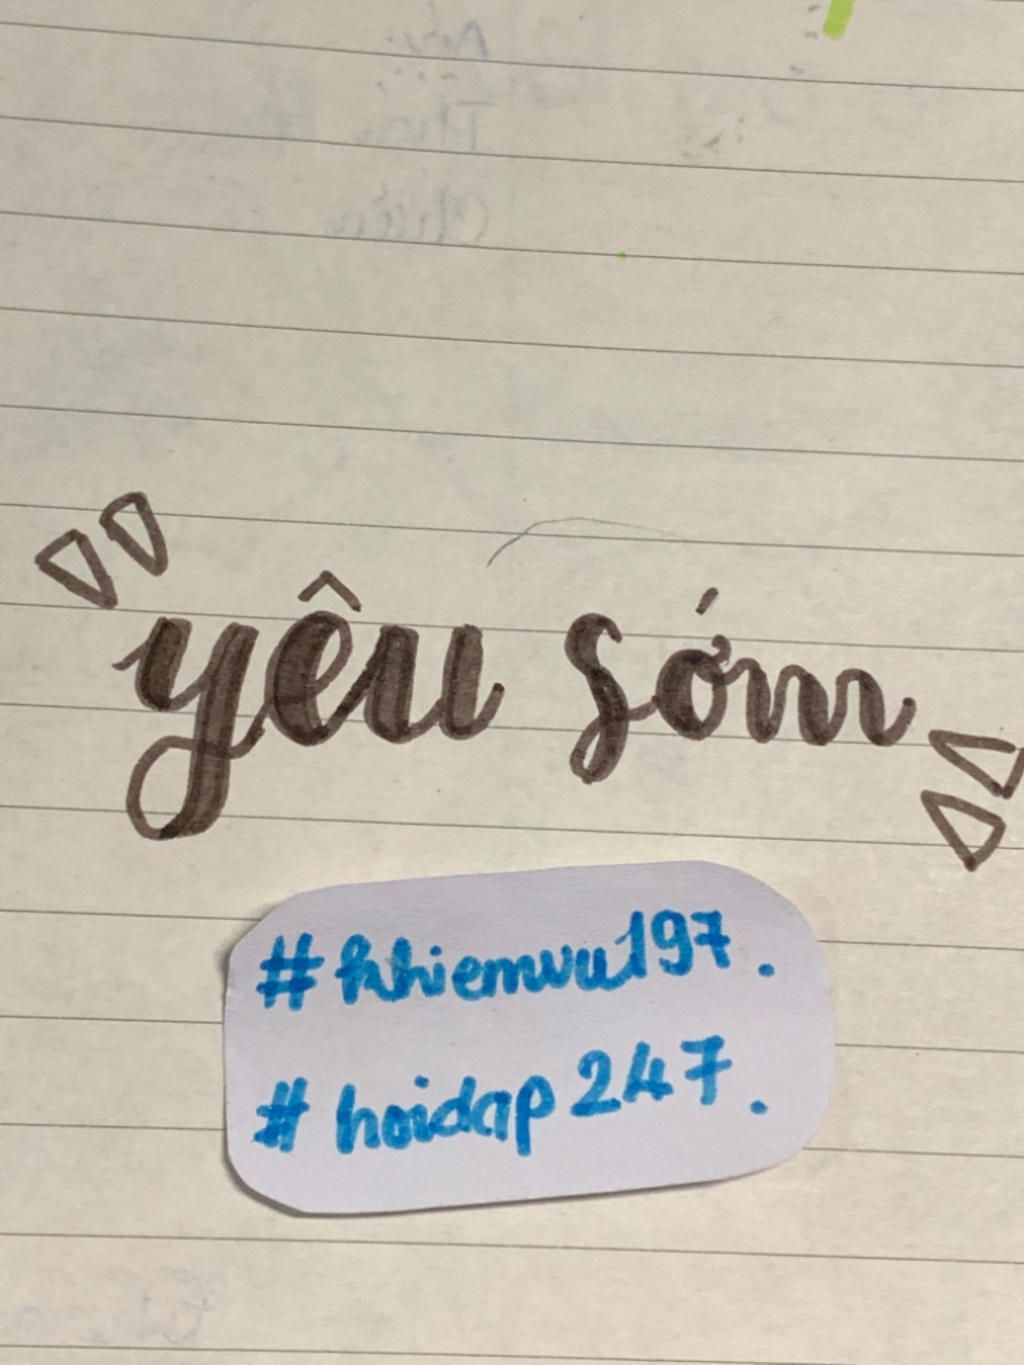 yêu sớm
#khiemvu197.
#hoidap247.